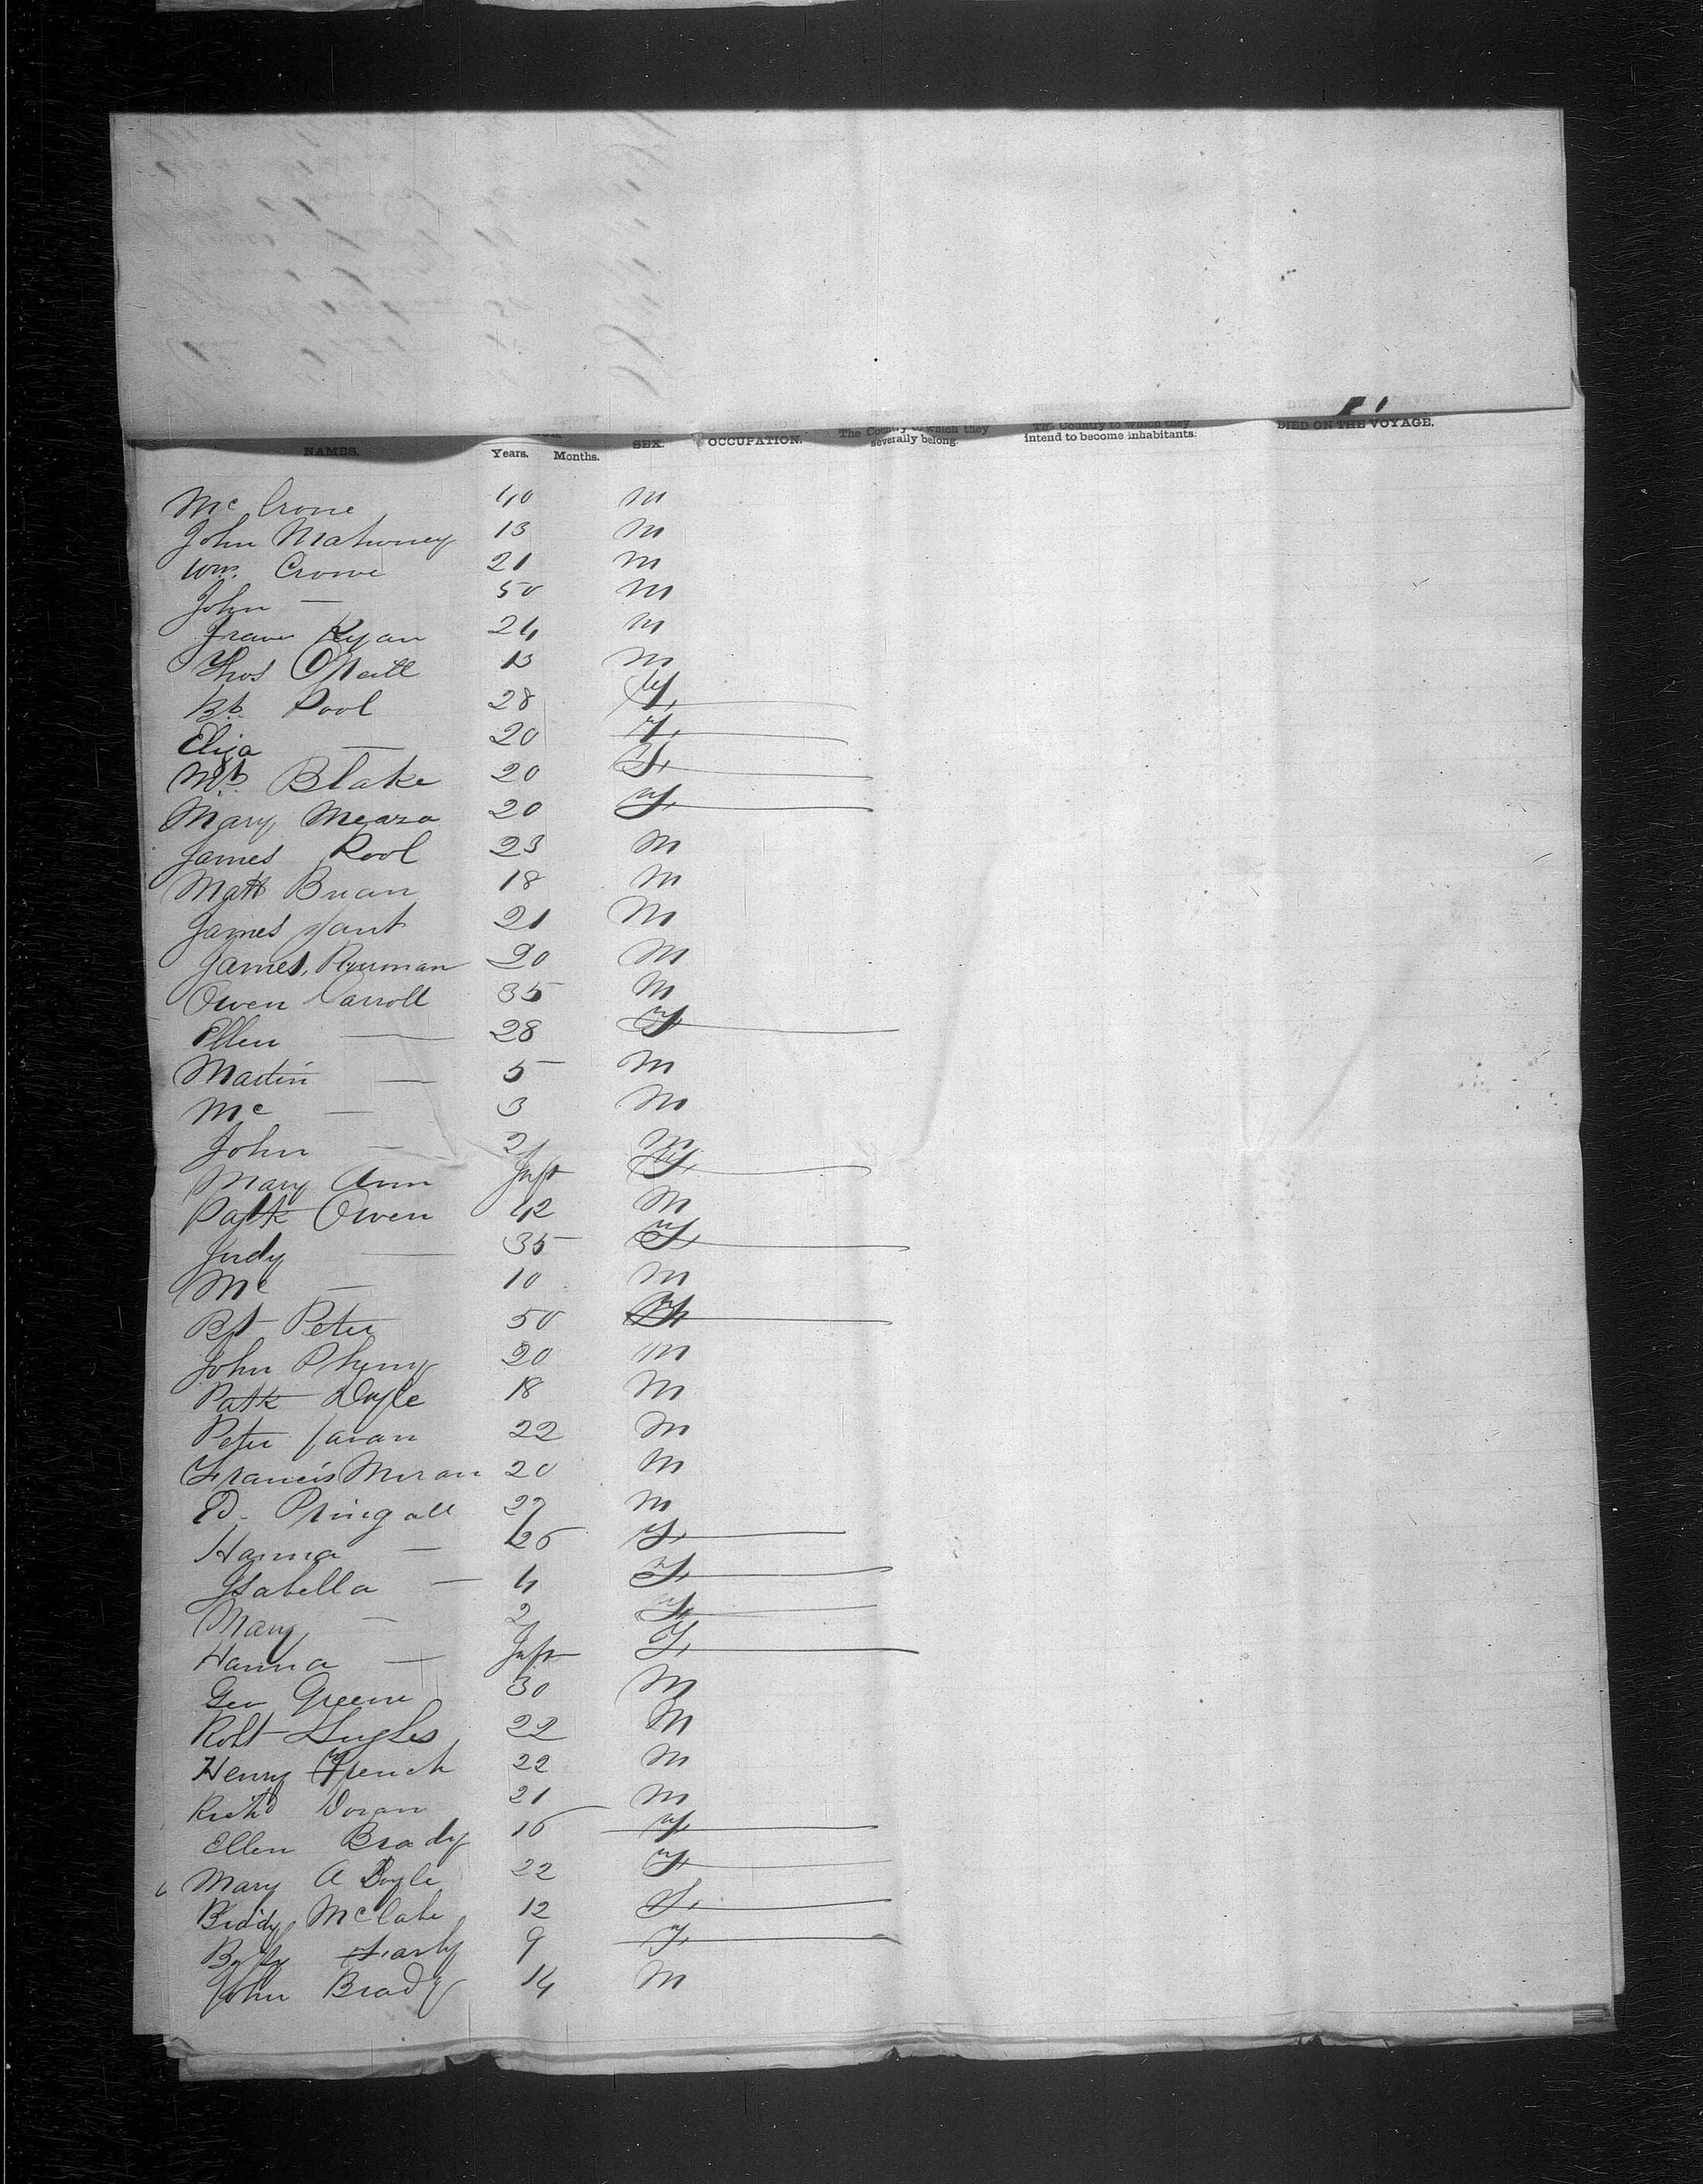 NAMES. Years. Months. SEX. OCCUPATION. The Country to which they severally belong The Country to which they intend to become inhabitants. DIED ON THE VOYAGE.
Mc Crone 40 M
John Mahoney 13 M
Wm. Crowe 21 M
John — 50 M
Ryan 24 M
Thos O'Neill 13 M
Bt. Pool 28 F
Eliza — 20 F
Blake 20 F
Mary Meara 20 F
James Pool 23 M
Matt Brian 18 M
James 21 M
James 20 M
Owen Carroll 35 M
Ellen — 28 F
Martin — 5 M
Mc — 3 M
John — 2 M
Mary Ann Inft F
Patk Owen 42 M
Judy — 35 F
Mc — 10 M
Bt Peter 50
John 20 M
Patk Doyle 18 M
Peter 22 M
Francis Moran 20 M
Ed. Pringall 27 M
Hanna — 26 F
Isabella — 4 F
Mary — 2 F
Hanna — Inft F
Geo Greene 30 M
Robt Hughes 22 M
Henry French 22 M
Richd Doran 21 M
Ellen Brady 16 F
Mary A Boyle 22 F
Biddy McCabe 12 F
9 F
John Brady 14 M